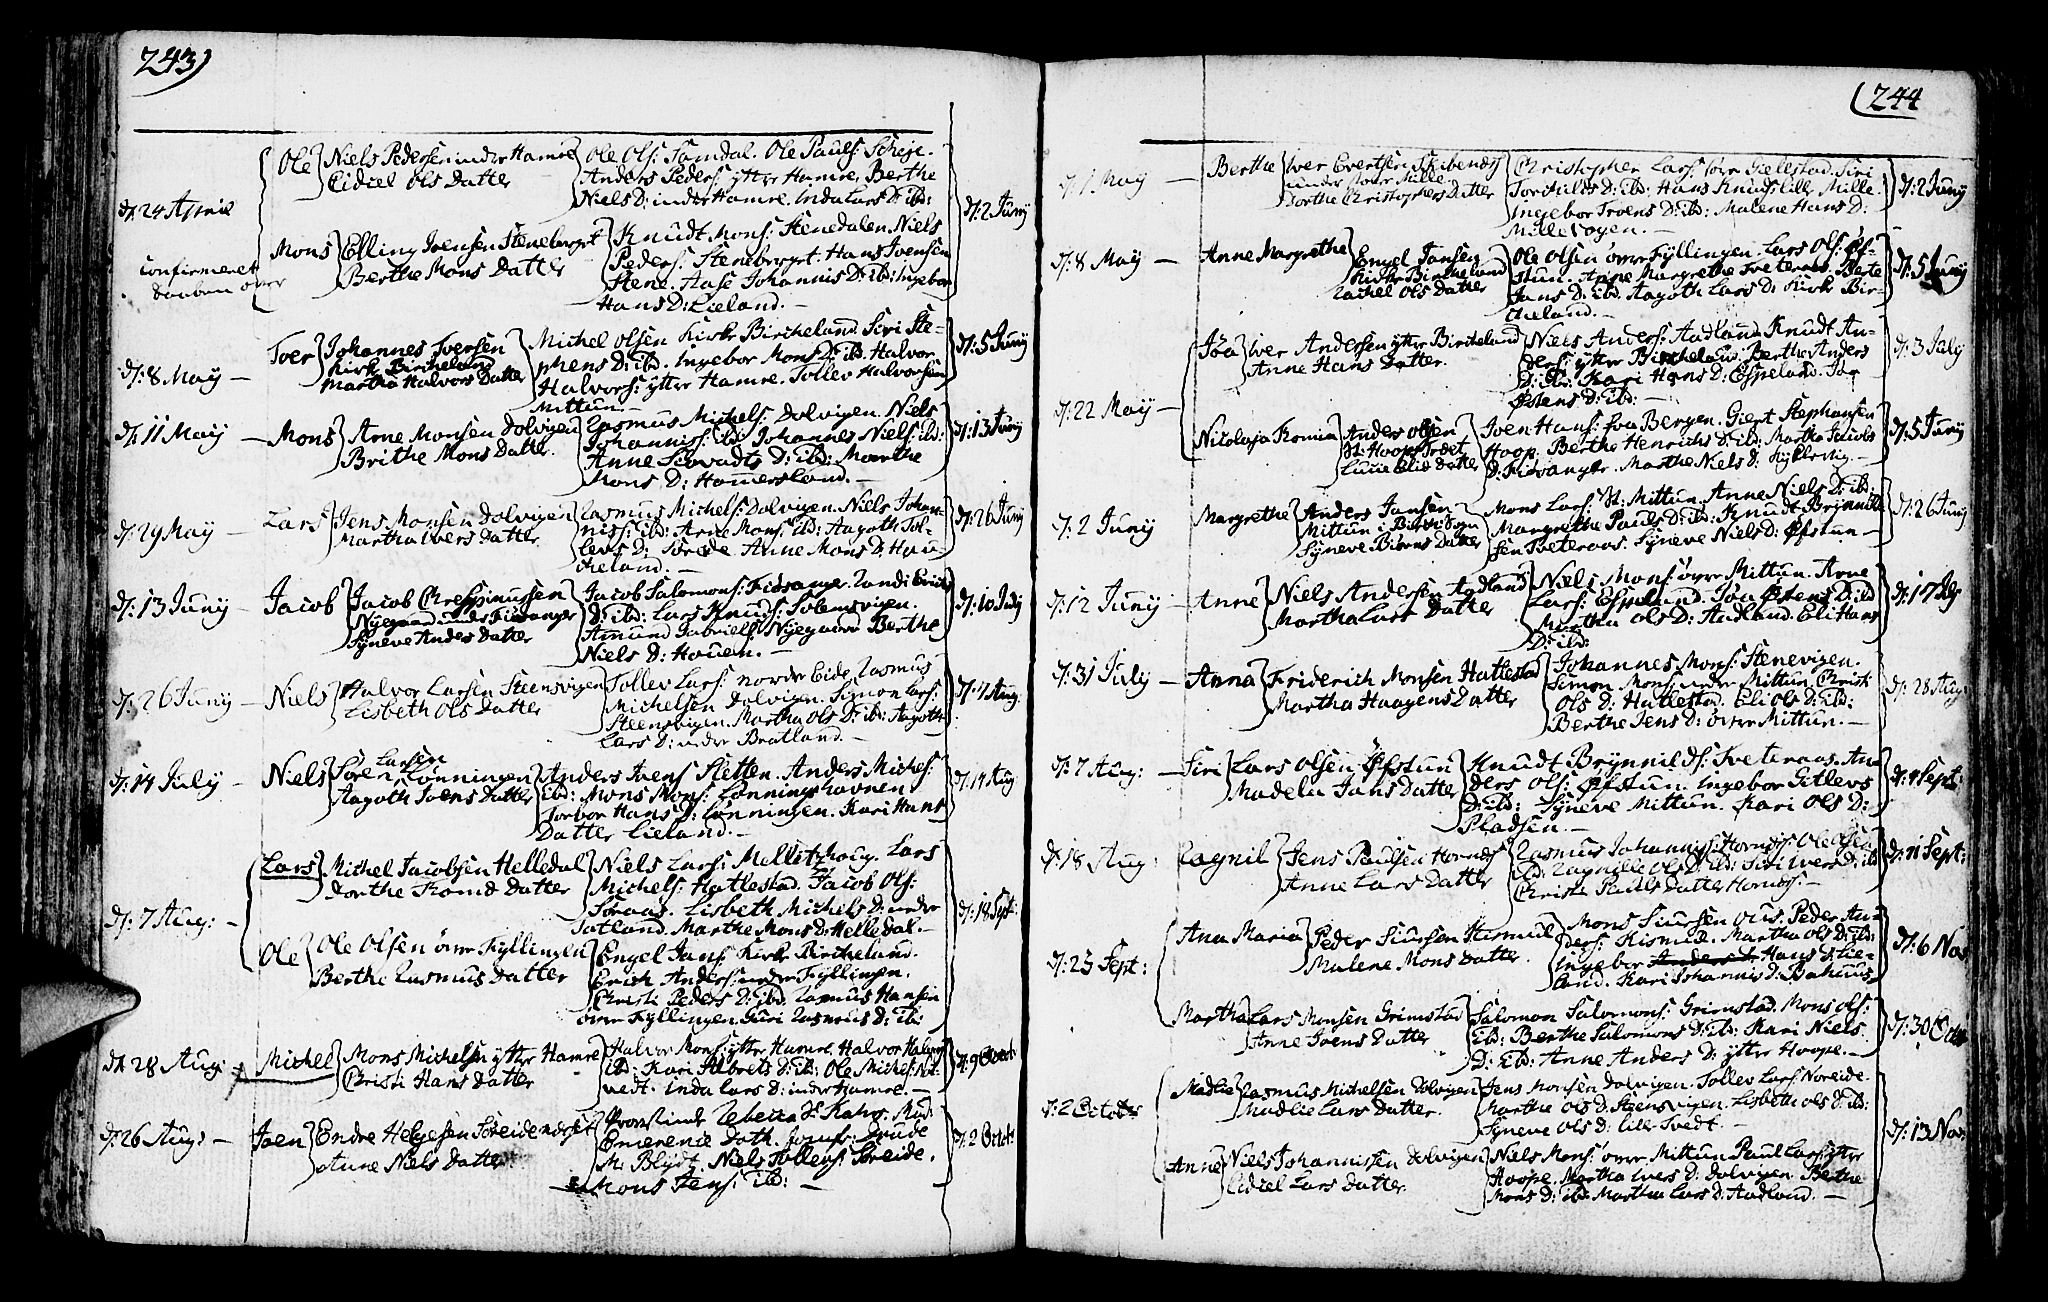 243)
d: 24 April
confirmeret
daaben over
Ole
Niels Pedersen indre Hamre
Eidiel Ols Datter
Ole Ols: Samdal. Ole Pauls: Scheje.
Anders Peders: ytter Hamre, Berthe
Niels D: indre Hamre. Inda Lars D: ibd:
d: 2 Junij
Mons
Elling Ivensen Steneberget
Berthe Mons Datter
Knudt Mons: Stenedalen Niels
Peders: Steneberget. Hans Ivensen
Stene. Aase Johannis D: ibd: Ingebor
Hans D: Lieland. —
d: 8 May —
Iver
Johannes Iversen
Kirke Bircheland
Martha Halvors Datter
Michel Olsen Kirke Bircheland. Siri Ste-
phens D: ibd. Ingebor Mons D: ibd. Halvor
Halvors: ytter Hamre. Tollev Halvorsen
Mittun. —
d: 5 Junij
d: 11 May —
Mons
Arne Monsen Dolvigen
Brithe Mons Datter
Rasmus Michels: Dolvigen. Niels
Johanniss: ibd: Johannes Niels: ibd:
Anne Sievadts D: ibd: Marthe
Mons D: Hamersland. —
d: 13 Junij
d: 29 May —
Lars
Jens Monsen Dolvigen
Martha Ivers Datter
Rasmus Michels: Dolvigen. Niels Johan-
niss: ibd: Arne Mons: ibd: Aagoth Tol-
levs D: Søreide. Anne Mons D: Hau
cheland. —
d: 26 Junij
d: 13 Junij —
Jacob
Jacob Chrespinussen
Nyegaard under Fidsanger
Syneve Anders Datter
Jacob Salomons: Fidsanger. Randi Erichs
D: ibd: Lars Knuds: Solemsvigen.
Amund Gabriels: Nyegaard Berthe
Niels D: Houen. —
d: 10 July
d: 26 Junij —
Niels
Halvor Larsen Steensvigen
Lisbeth Ols Datter
Tollev Lars: nordre Eide, Rasmus
Michelsen Dolvigen. Simon Lars:
Steensvigen. Martha Ols D: ibd: Aagoth
Lars D: indre Bratland. —
d: 7 Aug:
d: 14 July —
Niels
Larsen
Søren Lønningen
Aagoth Ivens Datter
Anders Ivens: Sletten. Anders Michels:
ibd: Mons Mons: Lønningshavnen
Torbor Hans D: Lønningen. Kari Hans
Datter Lieland. —
d: 14 Aug
d: 7 Aug: —
Lars
Michel Jacobsen Helledal
Dorthe Tomæ Datter
Niels Lars: Melletzhoug. Lars
Michels: Hatlestad. Jacob Ols:
Søraas. Lisbeth Michels D: indre
Totland. Marthe Mons D: Helledal. —
d: 18 Sept:
Ole
Ole Olsen øvre Fyllingen
Berthe Rasmus Datter
Engel Jans: Kirke Bircheland.
Erich Anders: nedre Fyllingen.
Christi Peders D: ibd. Rasmus Hansen
øvre Fyllingen. Guri Rasmus D: ib:
d: 28 Aug:
Michel
Mons Michelsen ytter Hamre
Christi Hans Datter
Halvor Mons: ytter Hamre. Halvor Halvors:
ibd: Kari Helbrets D: ibd: Ole Michels:
vedt. Inda Lars D: indre Hamre. —
d: 9 Octob:
d: 26 Aug: —
Joen
Endre Helgesen Søreidenæset
Anne Niels Datter
Provstinde Rebecca Sl: Kahrs. Mad:
Emerenie Dath. Jomf: Drude
M: Blydt. Niels Tollevs: Søreide.
Mons Jens: ibd: —
d: 2 Octob:
(244
d: 1 May —
Berthe
Iver Evertsen Skibenæs
under Store Mille
Dorthe Christophers Datter
Christopher Lars: øvre Gielestad. Siri
Torchilds D: ibd: Hans Knuds: lille Mille.
Ingebor Troens D: ibd: Malene Hans D:
Millevogen. —
d: 2 Junij
d: 8 May —
Anne Margrethe
Engel Jansen
Kirke Bircheland
Rachel Ols Datter
Ole Olsen øvre Fyllingen. Lars Ols: Øf-
stun. Anne Margrethe Tveteraas. Berte
Jans D: ibd. Aagoth Lars D: Kirke Bir-
cheland. —
d: 5 Junij
d: 22 May —
Joa
Iver Andersen ytter Bircheland
Anne Hans Datter
Niels Anders: Aadland. Knudt An-
ders: ytter Bircheland: Berthe Anders
D: ibd: Kari Hans D: Espeland. Joa
Østens D: ibd: —
d: 3 July
Nicolaja Romia
Anders Olsen
St: Hoops Træet
Lucie Elie Datter
Joen Hans: fra Bergen. Giert Stephansen
Hoop. Berthe Henrichs D: ibd: Martha Jacobs
D: Fidsanger. Marthe Niels D: Hyllevig. —
d: 5 Junij
d: 2 Junij
Margrethe
Anders Jansen
Mittun i Birke Sogn
Syneve Biørns Datter
Mons Lars: St: Mittun. Anne Niels D: ibd:
Margrethe Pauls D: ibd: Knudt Brynnild
sen Tveteraas. Syneve Niels D: Øfstun —
d: 26 Junij
d: 12 Junij —
Anne
Niels Andersen Aadland
Martha Lars Datter
Niels Mons: øvre Mittun. Arne
Lars: Espeland. Joa Østens D: ibd
Martha Ols D: Aadland. Eli Hans
D: ibd:
d: 17 July
d: 31 July —
Anna
Friderich Monsen Hatlestad
Martha Haagens Datter
Johannes Mons: Stenevigen.
Simon Mons: nedre Mittun Christi
Ols D: Hatlestad. Eli Ols D: ibd:
Berthe Jens D: øvre Mittun. —
d: 28 Aug:
d: 7 Aug: —
Siri
Lars Olsen Øfstun
Madela Jans Datter
Knudt Brynnilds: Tveteraas. An
ders Ols: Øfstun. Ingebor Gitlevs
D: ibd: Syneve Mittun. Kari Ols D:
Pladsen. —
Sept:
d: 18 Aug:
Ragnil
Jens Paulsen Hornæs
Anne Lars Datter
Rasmus Johannis: Hornæs. Ole Olsen
ibd. Ragnille Ols D: ibd: Siri Ivers D: ibd
Christi Pauls Datter Hornæs: —
d: 11 Sept:
d: 25 Sept:
Ana Maria
Peder Siursen Hismul
Malene Mons Datter
Mons Siursen Ous. Peder An-
ders: Hismul. Martha Ols D: ibd:
Ingebor Hans D: Lie-
land. Kari Johannis D: Bahuus
d: 6 Nov
Martha
Lars Monsen Grimstad
Anne Ivens Datter
Salomon Salomons: Grimstad. Mons Ols:
ibd: Berthe Salomons D: ibd: Kari Niels
D: ibd: Anne Anders D: ytter Hoope. —
d: 30 Octob
d: 2 October
Madlie
Rasmus Michelsen Dolvigen
Madlie Lars Datter
Jens Monsen Dolvigen. Tollev Lars: Noreide.
Marthe Ols D: Steensvigen. Lisbeth Ols D: ibd:
Syneve Ols D: lille Tvedt. —
d: 13 Nov
Anne
Niels Johannissen Dolvigen
Eidiel Lars Datter
Niels Mons: øvre Mittun Paul Lars: ytter
Hoope. Martha Ivers D: Dolvigen. Berthe
Mons D: ibd. Martha Lars D: Aadland. —